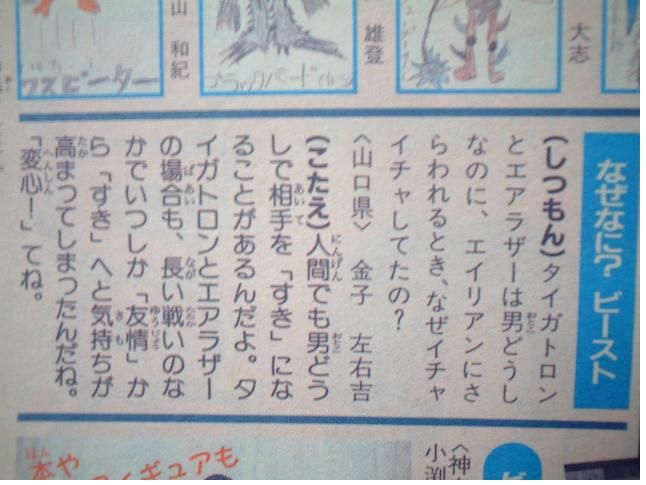 なぜなに？ ビースト
（しつもん）タイガトロン
とエアラザーは男どうし
なのに、エイリアンにさ
らわれるとき、なぜイチャ
イチャしてたの？
〈山口県〉 金子 左右吉
（こたえ）人間でも男どう
しで相手を「すき」にな
ることがあるんだよ。タ
イガトロンとエアラザー
の場合も、長い戦いのな
かでいつしか「友情」か
ら「すき」へと気持ちが
高まってしまったんだね。
「変心！」てね。
大志
雄登
山 和紀
ブラックバード
スピーター
本や
ギュアも
〈神
小渕